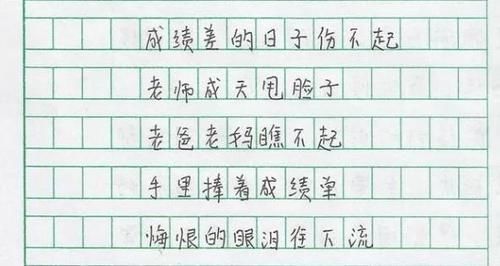 成绩差的日子伤不起
老师成天甩脸子
老爸老妈瞧不起
手里捧着成绩单
悔恨的眼泪往下流